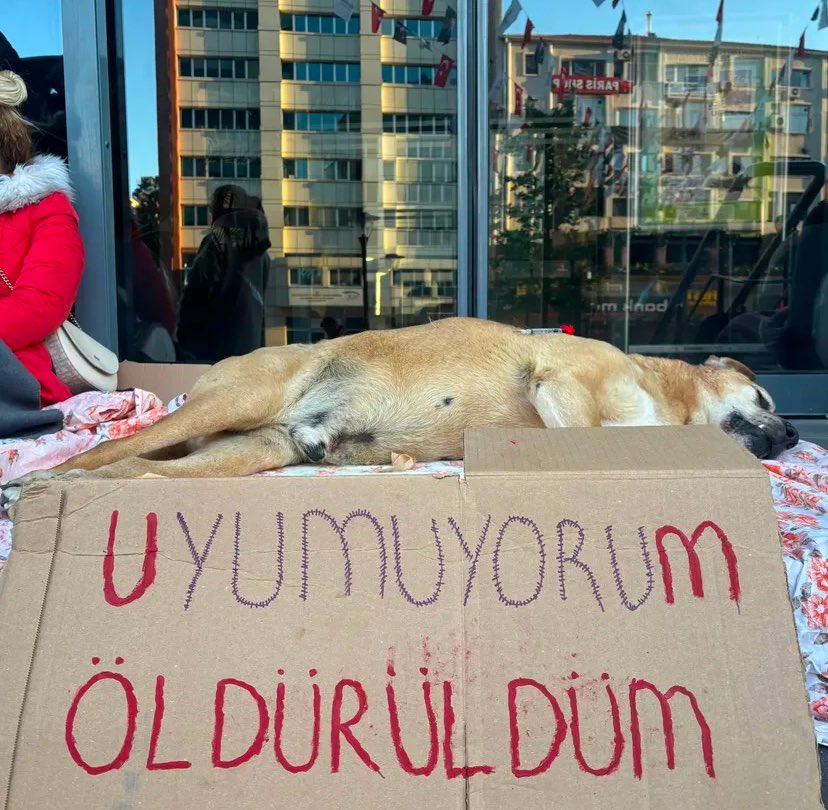 PARIS
bank
UYUMUYORUM
ÖLDÜRÜLDÜM